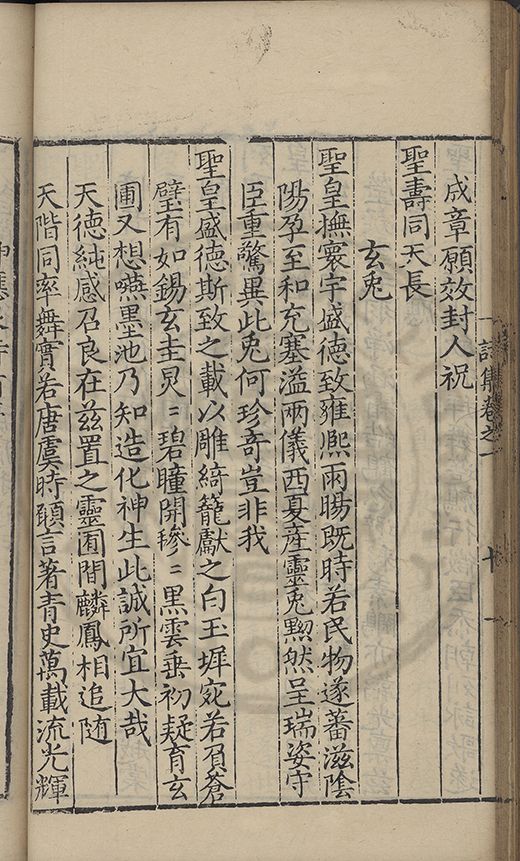 詩集卷之一
十
成章願效封人祝
聖壽同天長
玄兎
聖皇撫寰宇盛德致雍熈兩暘既時若民物遂蕃滋陰
陽孕至和充塞溢兩儀西夏產靈兎黝然呈瑞姿守
臣重驚異此兎何珍奇豈非我
聖皇盛德斯致之載以雕綺籠獻之白玉墀宛若負蒼
璧有如錫玄圭炅〻碧瞳開糝〻黑雲垂初疑育玄
圃又想嚥墨池乃知造化神生此誠所宜大哉
天德純感召良在兹置之靈囿間麟鳳相追随
天階同率舞實若唐虞時願言著青史萬載流光輝